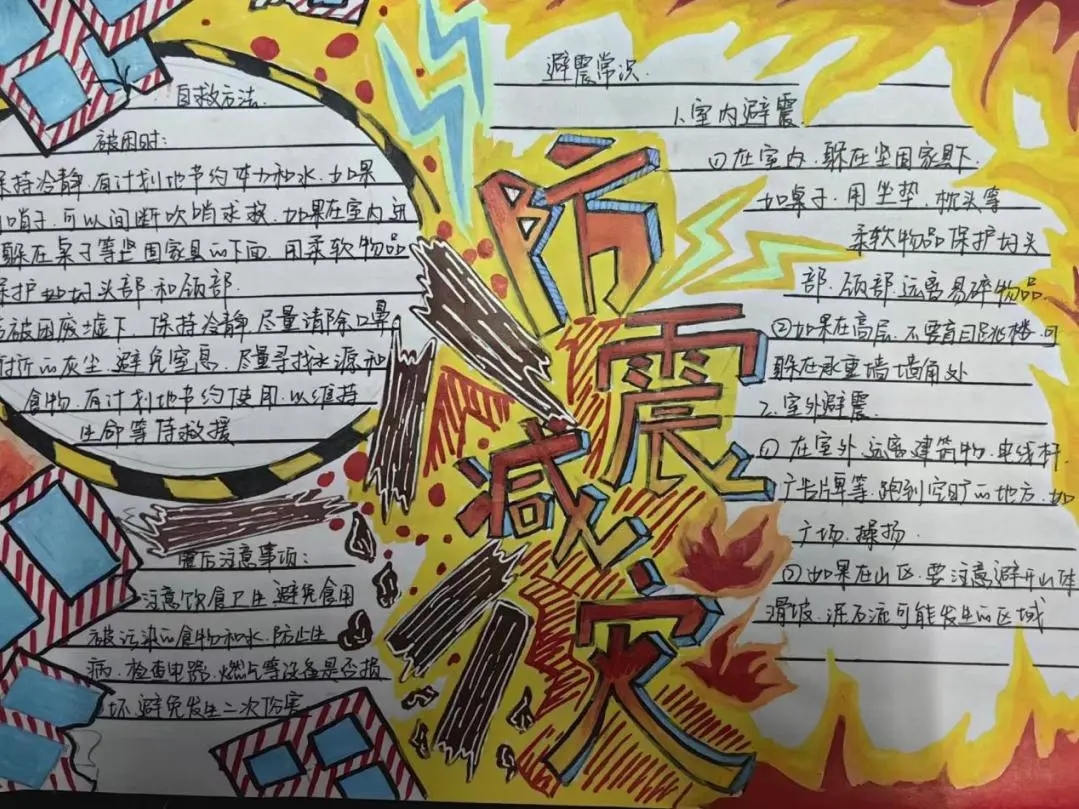 自救方法
被困时:
保持冷静,有计划地节约体力和水,如果
哨子,可以间断吹哨求救,如果在室内
躲在桌子等坚固家具的下面,用柔软物品
保护好头部和颈部.
被困废墟下,保持冷静,尽量清除口鼻
的灰尘,避免窒息,尽量寻找水源和
食物,有计划地节约使用,以维持
生命等待救援
震后注意事项:
注意饮食卫生,避免食用
被污染的食物和水,防止生
病.检查电器,燃气等设备是否损
坏,避免发生二次伤害
防震减灾
避震常识.
1.室内避震
①在室内,躲在坚固家具下.
如桌子,用坐垫,枕头等
柔软物品保护好头
部,颈部,远离易碎物品
②如果在高层,不要盲目跳楼,可
躲在承重墙墙角处
2.室外避震
①在室外,远离建筑物,电线杆,
广告牌等,跑到空旷的地方,如
广场,操场.
②如果在山区,要注意避开山体
滑坡,泥石流可能发生的区域